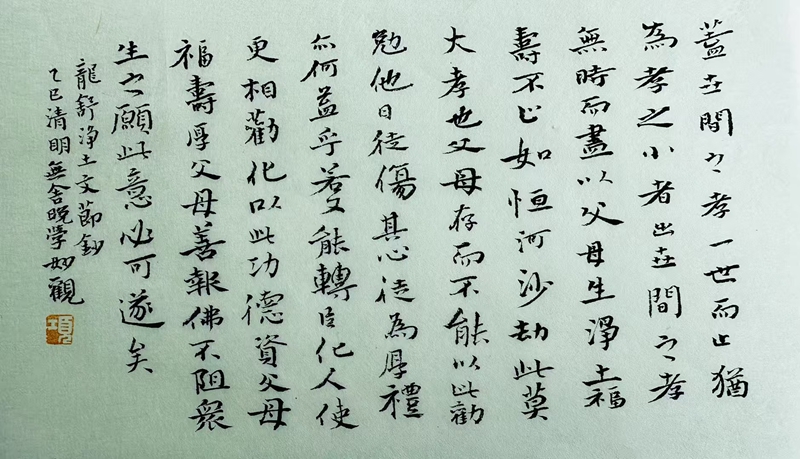 蓋世間之孝一世而止猶
為孝之小者出世間之孝
無時而盡以父母生淨土福
壽不止如恒河沙劫此莫
大孝也父母存而不能以此勸
勉他日徒傷其心徒為厚禮
亦何益乎若又能轉㠯化人使
更相勸化以此功德資父母
福壽厚父母善報佛不阻眾
生之願此意必可遂矣
龍舒淨土文節鈔
乙巳清明無舍晚學妙觀